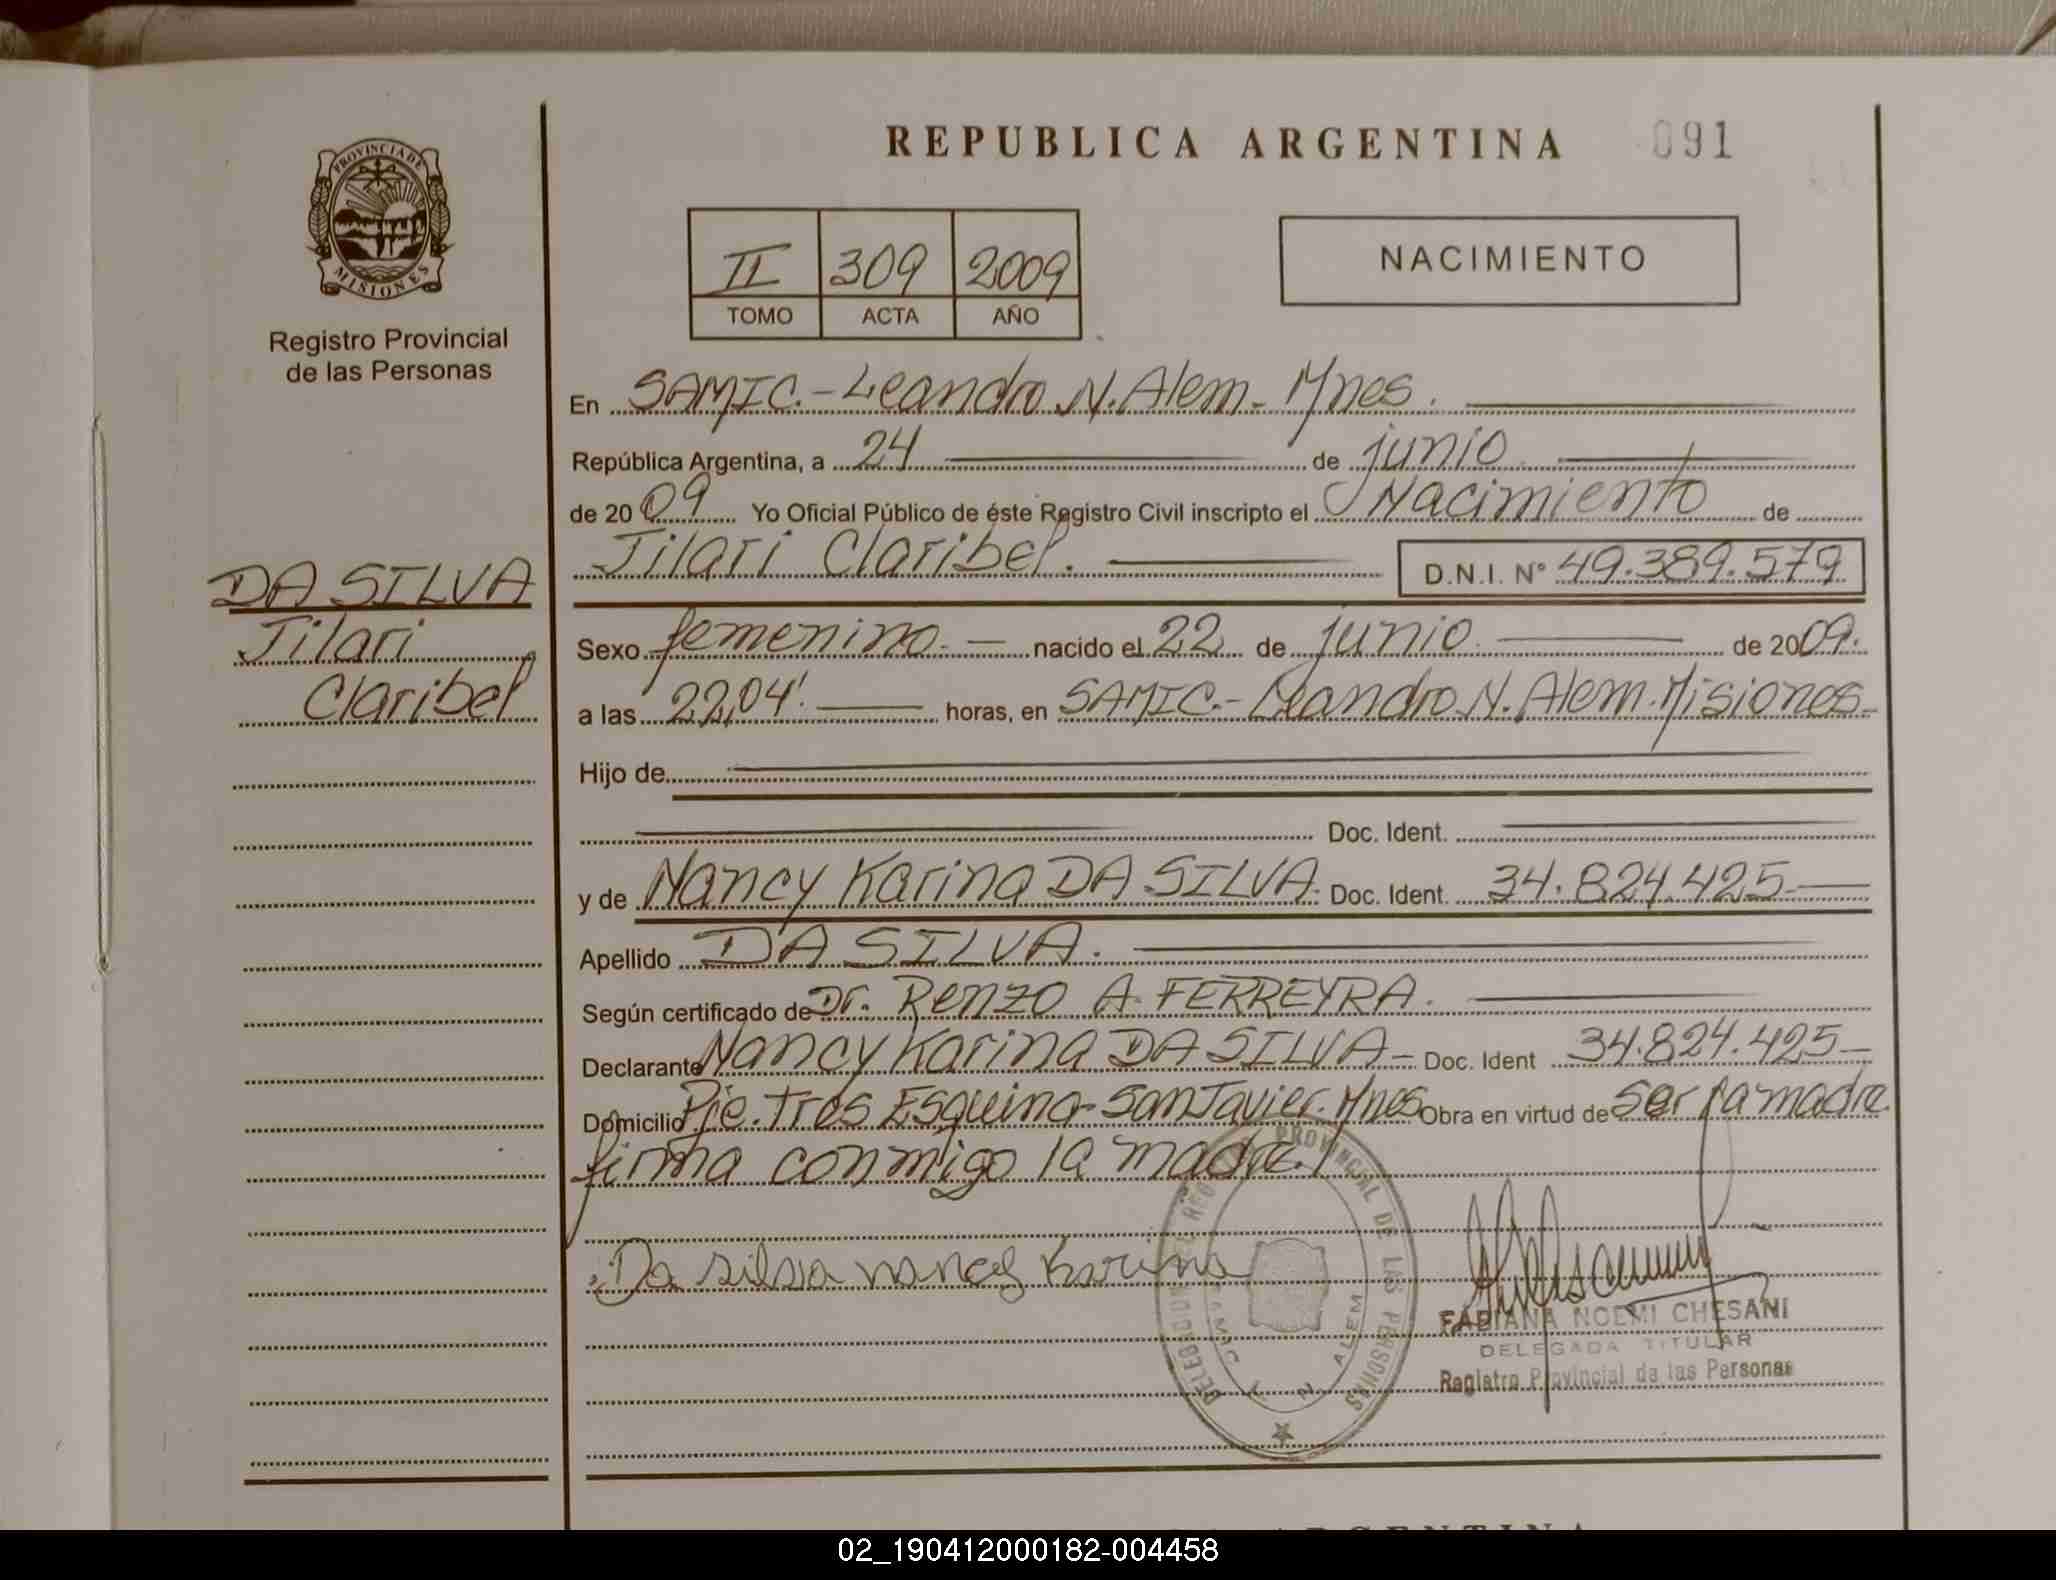 REPUBLICA ARGENTINA 091
PROVINCIA DE
MISIONES
Registro Provincial
de las Personas
II 309 2009
TOMO ACTA AÑO
NACIMIENTO
En SAMIC.-Leandro N. Alem- Mnes.
República Argentina, a 24 de junio
de 2009 Yo Oficial Público de éste Registro Civil inscripto el Nacimiento de
Jilari Claribel. D.N.I. N° 49.389.579
DA SILVA
Jilari
Claribel
Sexo femenino.- nacido el 22 de junio de 2009.
a las 22,04'. horas, en SAMIC.-Leandro N. Alem. Misiones-
Hijo de
Doc. Ident.
y de Nancy Karina DA SILVA. Doc. Ident. 34.824.425-
Apellido DA SILVA.
Según certificado de Dr. Renzo A. FERREYRA.
Declarante Nancy Karina DA SILVA- Doc. Ident 34.824.425-
Domicilio Pje. Tres Esquina- San Javier. Mnes Obra en virtud de ser la madre.
firma conmigo la madre.
Da silva nancy Karina
DELEGACION REGISTRO PROVINCIAL DE LAS PERSONAS
SAMIC L N ALEM
FABIANA NOEMI CHESANI
DELEGADA TITULAR
Registro Provincial de las Personas
ARGENTINA
02_190412000182-004458